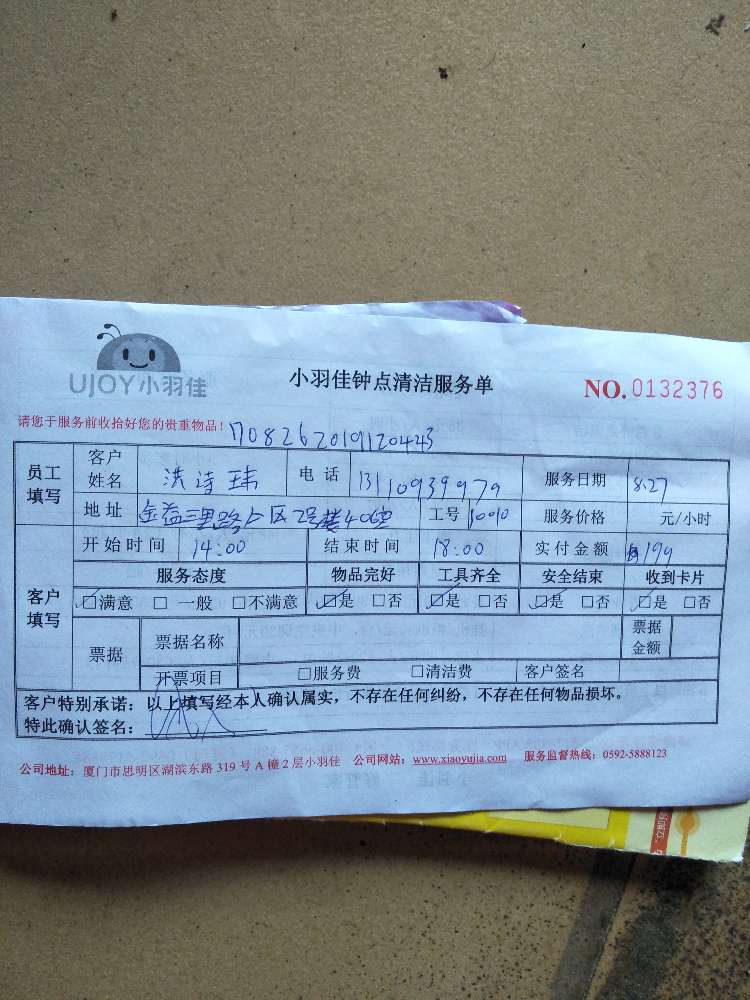 UJOY小羽佳
小羽佳钟点清洁服务单
NO.0132376
请您于服务前收拾好您的贵重物品！
17082620191120443
员工填写 客户姓名 洪诗玮 电话 13110939979 服务日期 8.27
地址 金益三里路 区2号楼406 工号 10010 服务价格 元/小时
客户填写 开始时间 14:00 结束时间 18:00 实付金额 199
服务态度 物品完好 工具齐全 安全结束 收到卡片
☑满意 □一般 □不满意 ☑是 □否 ☑是 □否 ☑是 □否 ☑是 □否
票据 票据名称 票据金额
开票项目 □服务费 □清洁费 客户签名
客户特别承诺：以上填写经本人确认属实，不存在任何纠纷，不存在任何物品损坏。
特此确认签名：
公司地址：厦门市思明区湖滨东路 319 号 A 幢 2 层小羽佳 公司网站：www.xiaoyujia.com 服务监督热线：0592-5888123